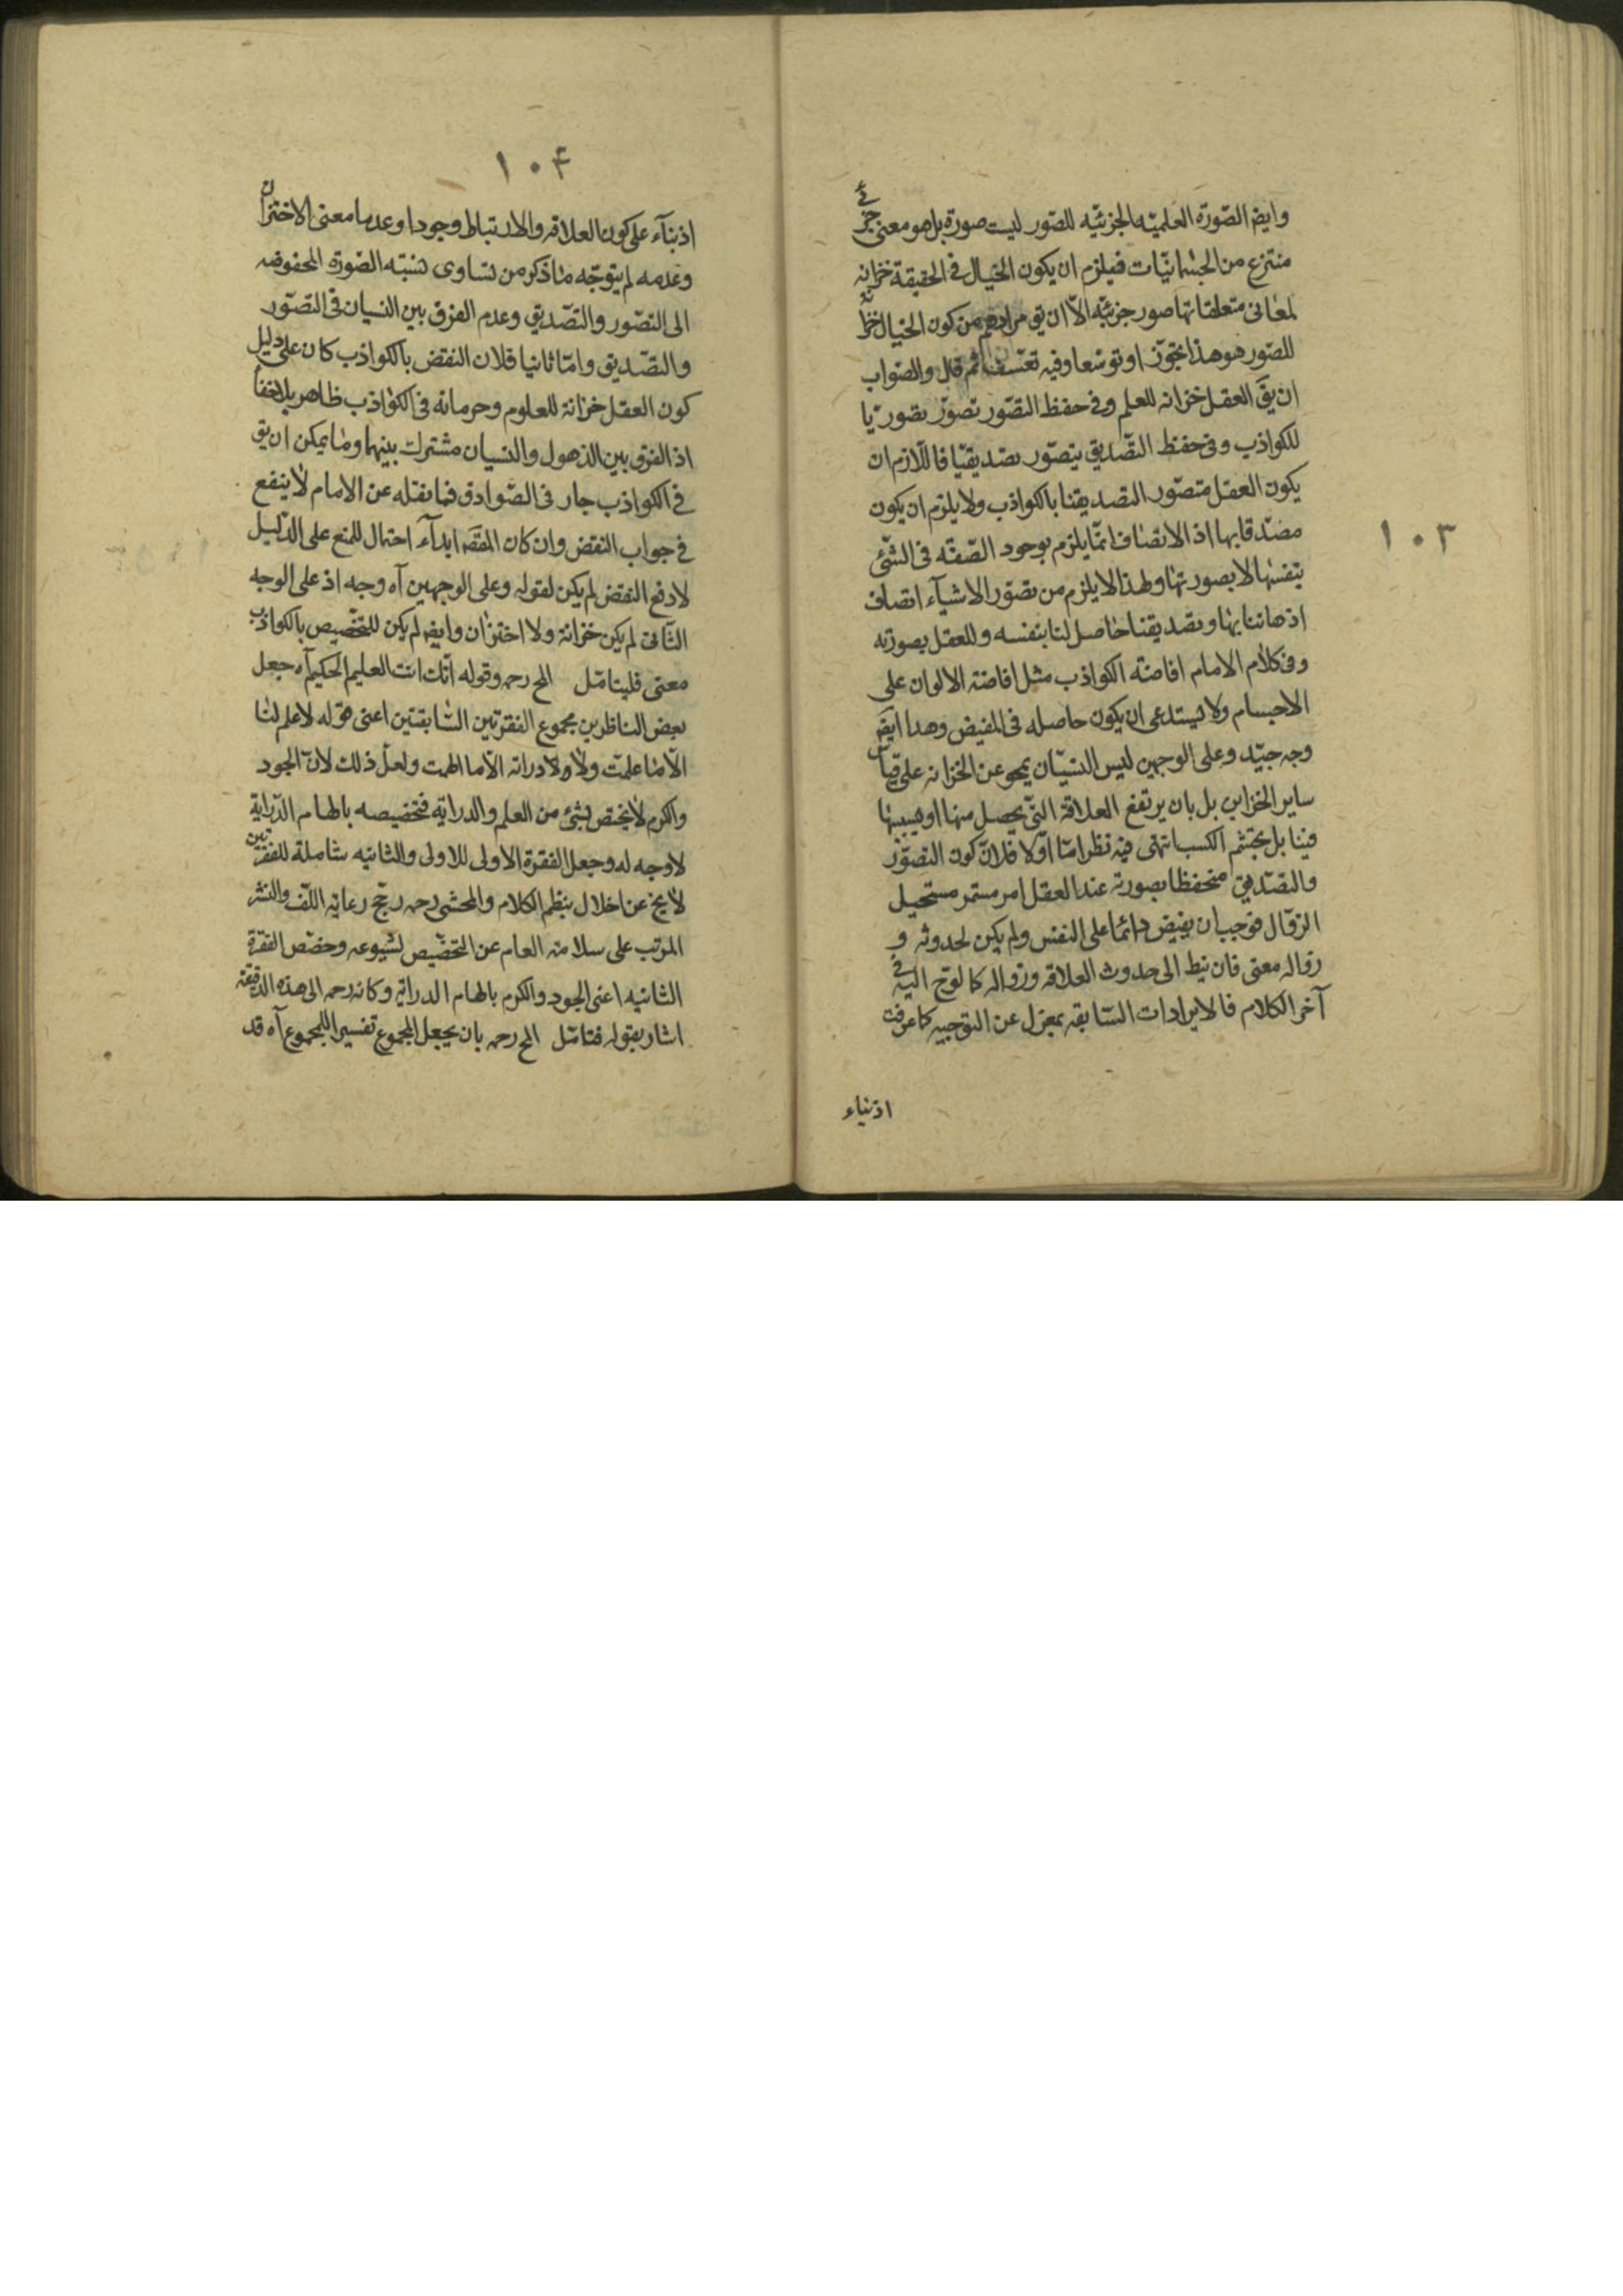 ١٠٣
وايضا الصّورة العلميّه الجزئيّه للصّور ليست صورة بل هو معنى جزئى
منتزع من الجسمانيّات فيلزم ان يكون الخيال فى الحقيقة خزانه
لمعانى متعلقاتها صور جزئيّه الاّ ان يق مرادهم من كون الخيال خزانة
للصّور هو هذا تجوّزا و توسّعا وفيه تعسّف ثم قال والصّواب
ان يقَ العقل خزانه للعلم وفى حفظ التصّور تصوّر تصوريّا
للكواذب وفى حفظ التصّديق يتصّور تصديقيّا فاللاّزم ان
يكون العقل متصّور التصديقنا بالكواذب ولا يلزم ان يكون
مصدّقا بها اذ الاتصاف انمّا يلزم بوجود الصّفه فى الشّئ
بنفسها لا بصورتها ولهذا لا يلزم من تصوّر الاشيآء اتصاف
اذهاننا بها وتصديقنا حاصل لنا بنفسه وللعقل بصورته
وفى كلام الامام افاضة الكواذب مثل افاضة الالوان على
الاجسام ولا يستدعى ان يكون حاصله فى المفيض وهذا ايضَ
وجه جيّد وعلى الوجهين ليس النسيّان بمحو عن الخزانه على قياس
ساير الخزاين بل بان يرتفع العلاقة التّى يحصل منها او هيبتها
فينا بل بتجشّم الكسب انتهى فيه نظر امّا اوّلا فلانّ كون التصوّر
والتصّديق منحفظا بصورته عند العقل امر مستمر مستحيل
الزوّال فوجب ان يفيض دائما على النفس ولم يكن لحدوثه و
زواله معنى فان نيط الى حدوث العلاقه وزواله كما لوّح اليه فى
آخر الكلام فالايرادات السّابقه بمعزل عن التوجيه كما عرفت
اذ بناء
١٠۴
اذ بنآء على كون العلاقه والارتباط وجودا وعدما معنى الاختزان
وعدمه لم يتوجّه ما ذكر من تساوى نسبته الصّورة المحفوضه
الى التصّور والتصّديق وعدم الفرق بين النسيان فى التصّور
والتصّديق وامّا ثانيا فلان النقض بالكواذب كان على دليل
كون العقل خزانة للعلوم وجريانه فى الكواذب ظاهر بلاخفا
اذ الفرق بين الذهول والنسيان مشترك بينهما وما يمكن ان يق
فى الكواذب جار فى الصّوادق فما نقله عن الامام لا ينفع
فى جواب النقض وان كان المقصَ ابدآء احتمال للمنع على الدّليل
لا دفع النقض لم يكن لقوله وعلى الوجهين آه وجه اذ على الوجه
الثّانى لم يكن خزانة ولا اختزان وايضا لم يكن للتّخصيص بالكواذب
معنى فليتامّل المح رحمه وقوله انّك انت العليم الحكيم آه جعل
بعض الناظرين مجموع الفقرتين السّابقتين اعنى قوله لا علم لنا
الاّ ما علمّت ولا دراته الاّ ما الهمت ولعلّ ذلك لانّ الجود
والكرم لا يختص بشئ من العلم والدراية فتخصيصه بالهام الدّراية
لا وجه له وجعل الفقرة الاولى للاولى والثانيه شاملة للفقرتين
لا يخ عن اخلال بنظم الكلام والمحشى رحمه رجّح رعاية اللّف والنشر
المرتب على سلامة العام عن التخصّيص لشيوعه وخصّص الفقرة
الثانيه اعنى الجود والكرم بالهام الدراية وكانه رحمه الى هذه الدقيقة
اشار بقوله فتامّل المح رحمه بان يجعل المجموع تفسيرا للمجموع آه قد